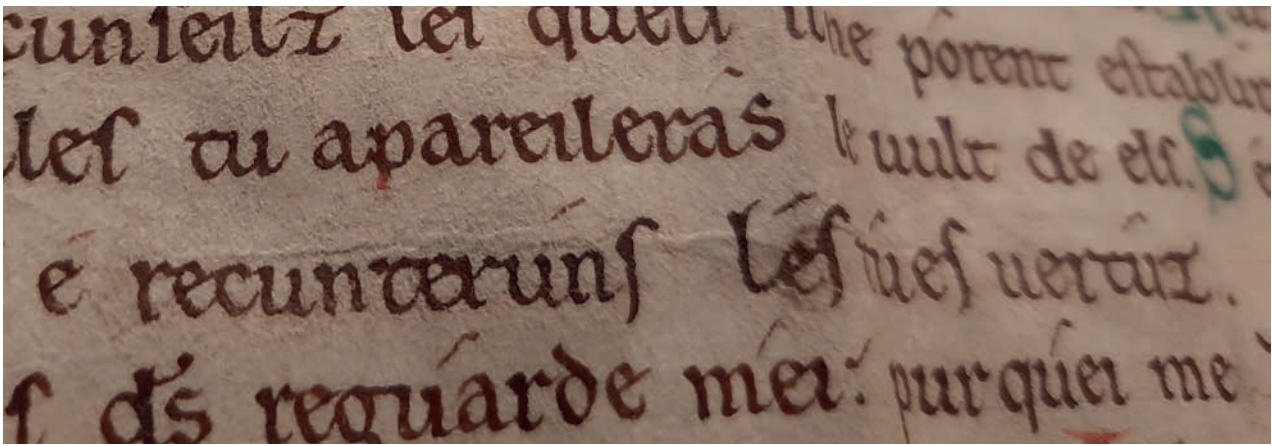 cunſeilz ne pórent eſtablir
leſ tu apareileras le uult de elſ. S
é recunterúnſ léſ túeſ uertúz.
ſ dś reguárde méi: purquéi me